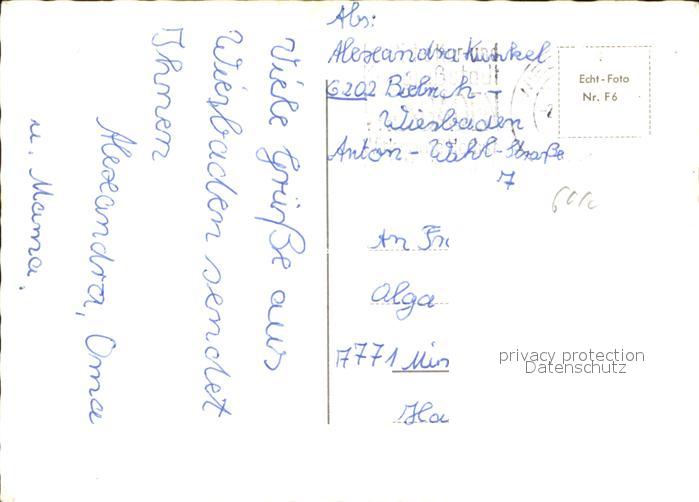 Viele Grüße aus
Wiesbaden sendet
Ihnen
Alexandra, Oma
u. Mama.
Abs:
Alexandra Kunkel
6202 Biebrich -
Wiesbaden
Anton - Wahl - Straße
7
Echt - Foto
Nr. F6
An Fr
Olga
7771 Mim
Ha
privacy protection
Datenschutz